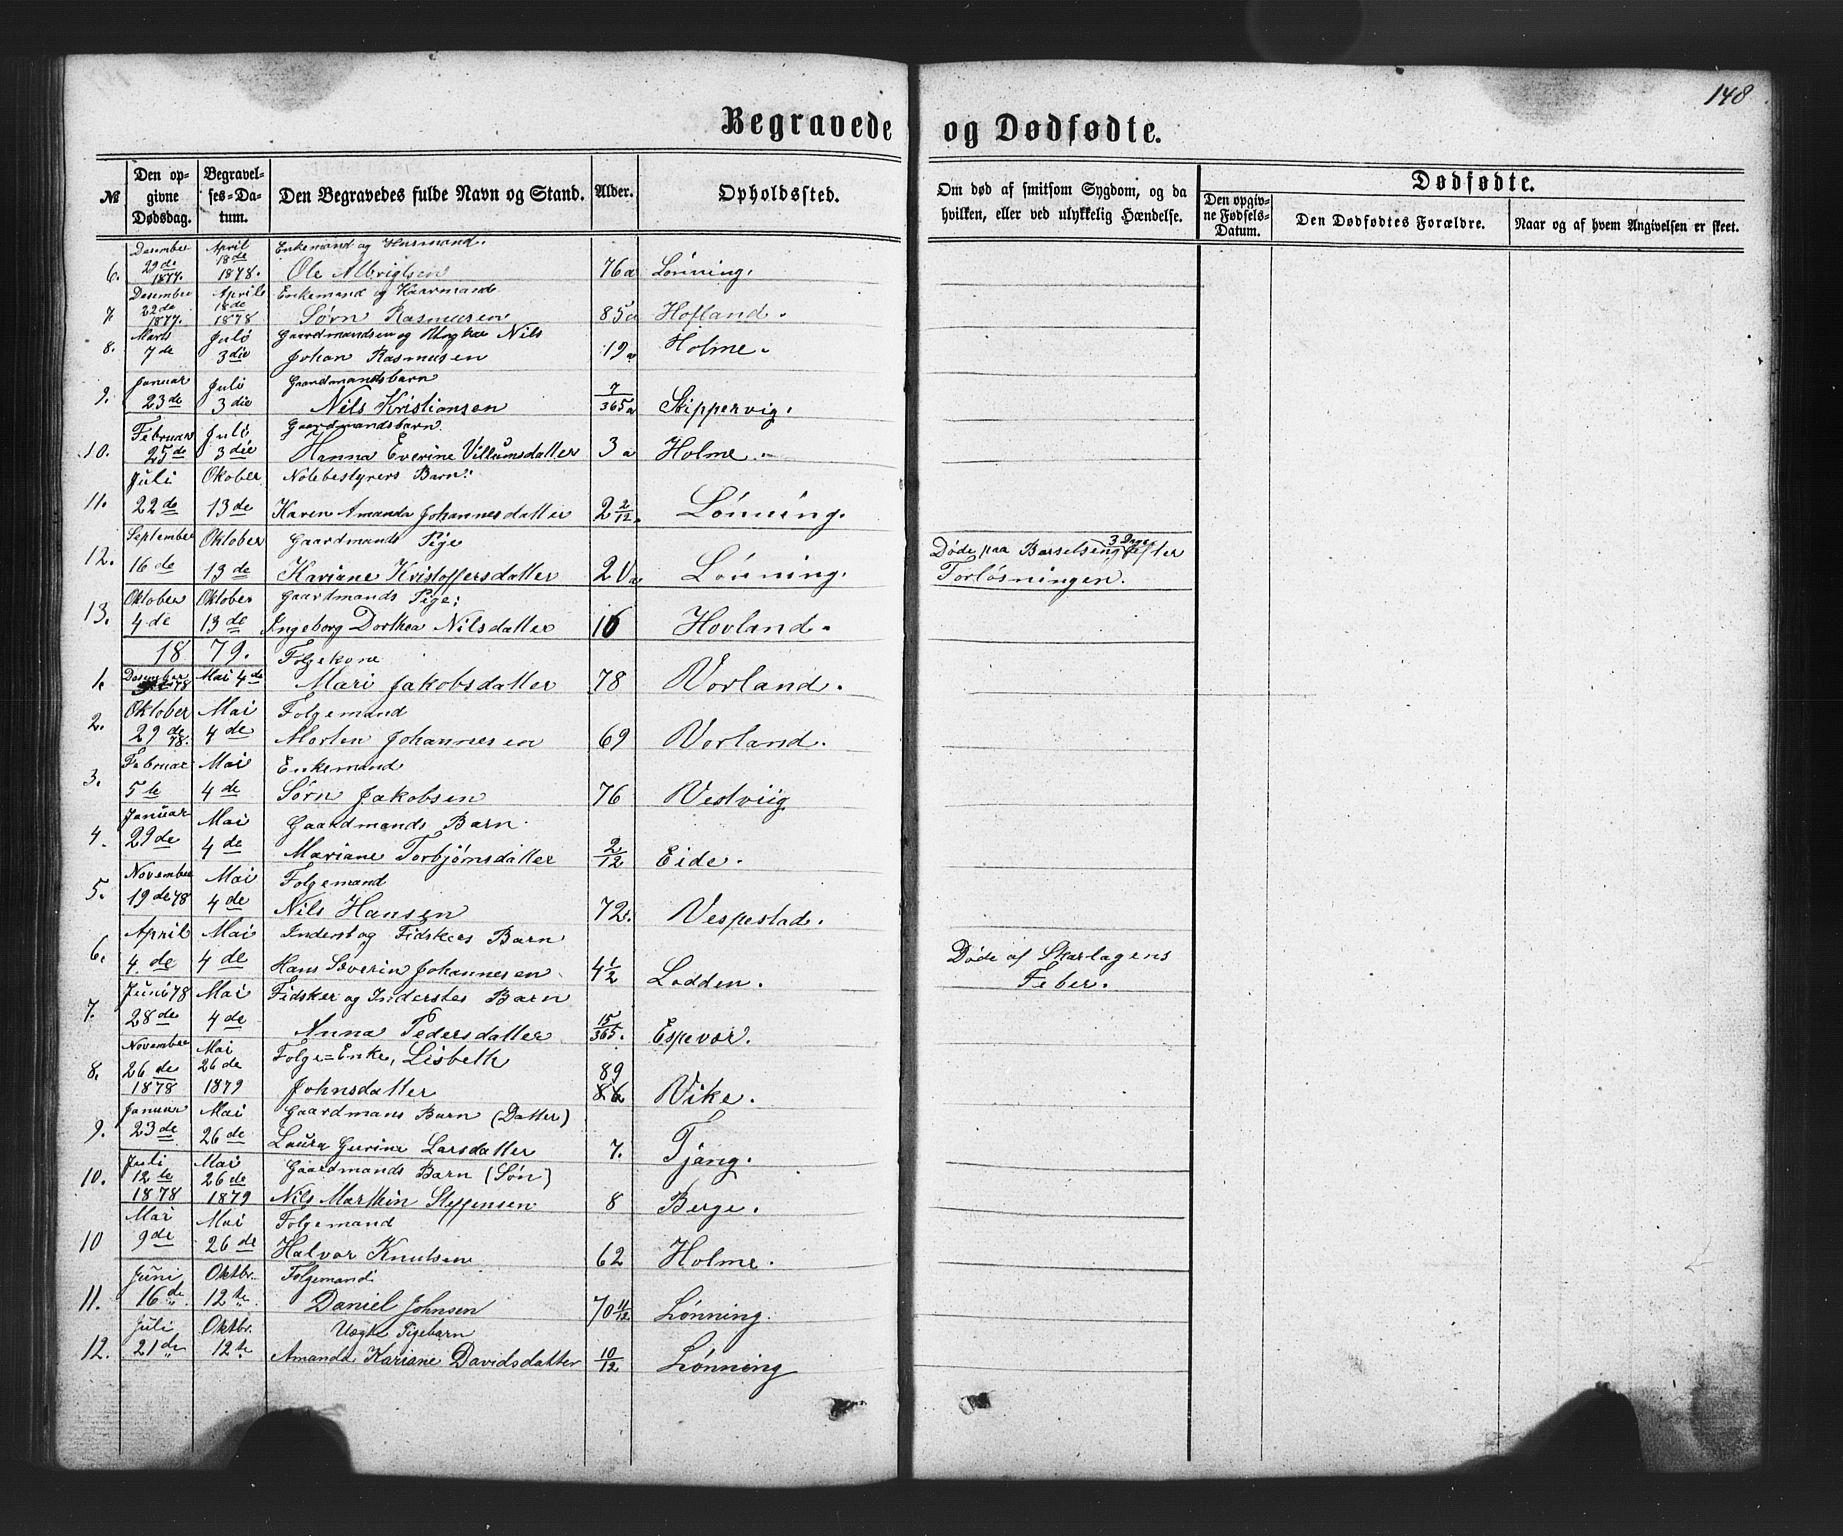 148
Begravede og Dødfødte.
№ Den opgivne Dødsdag. Begravelses-Datum. Den Begravedes fulde Navn og Stand. Alder. Opholdssted. Om død af smitsom Sygdom, og da hvilken, eller ved ulykkelig Hændelse. Dødfødte. Den opgivne Fødsels-Datum. Den Dødfødtes Forældre. Naar og af hvem Angivelsen er skeet.
Desember April Enkemand og Husmand.
6. 29de 1877. 18de 1878. Ole Albrigtsen 76a Lønning.
Desember Aprils Enkemand og Kaarmand
7. 22de 1877. 18de 1878 Sørn Rasmusen 85a Hofland.
Marts Juli Gaardmandsen og Ungkar Nils
8. 7de 3die Johan Rasmusen 19a Holme.
Januar Juli Gaardmandsbarn
9. 23de 3die Nils Kristiansen 7/365a Skippervig.
Februar Juli Gaardmandsbarn
10. 25de 3die Hanna Everine Villumsdatter 3a Holme.
Juli Okober Notebestyrers Barn:
11. 22de 13de Karen Amanda Johannesdatter 2 2/12. Lønning.
September Oktober Gaardmands Pige
12. 16de 13de Kariane Kristoffersdatter Lønning. Døde paa Barselseng 3 Dage efter
Forløsningen.
Oktober Oktober Gaardmands Pige:
13. 4de 13de Ingeborg Dorthea Nilsdatter 16 Hovland.
1879. Folgekone
1. Desember 78 Mai 4de Mari Jakobsdatter 78 Vorland.
Oktober Mai Folgemand
2. 29de 78. 4de Morten Johannesen 69 Vorland.
Februar Mai Enkemand
3. 5te 4de Sørn Jakobsen 76 Vestviig
Januar Mai Gaardmands Barn
4. 29de 4de Mariane Torbjørnsdatter 2/12 Eide.
November Mai Folgemand
5. 19de 78 4de Nils Hansen 72. Vespestad.
April Mai Inderst og Fidskers Barn
6. 4.de 4de Hans Severin Johannesen 4 1/2 Lodden. Døde af Skarlagens
Feber.
Juni 78 Mai Fidsker og Inderstes Barn
7. 28de 4de Anna Pedersdatter 15/365. Espevær.
November Mai Folge=Enke, Lisbeth
8. 26de 1878 26de 1879 Johnsdatter 89 86 Vike.
Januar Mai Gaardmans Barn (Datter)
9. 23de 26de Laura Gurine Larsdatter 7. Tjang.
Juli Mai Gaardmands Barn (Søn)
10. 12te 1878 26de 1879 Nils Marthin Steffensen 8 Berge.
Mai Mai Folgemand
10 9de 26de Halvor Knutsen 62 Holme.
Juni Oktbr. Folgemand
11. 16de 12te Daniel Johnsen 70 11/12 Lønning.
Juli Oktbr. Uægte Pigebarn
12. 21de 12te Amanda Kariane Davidsdatter 10/12 Lønning